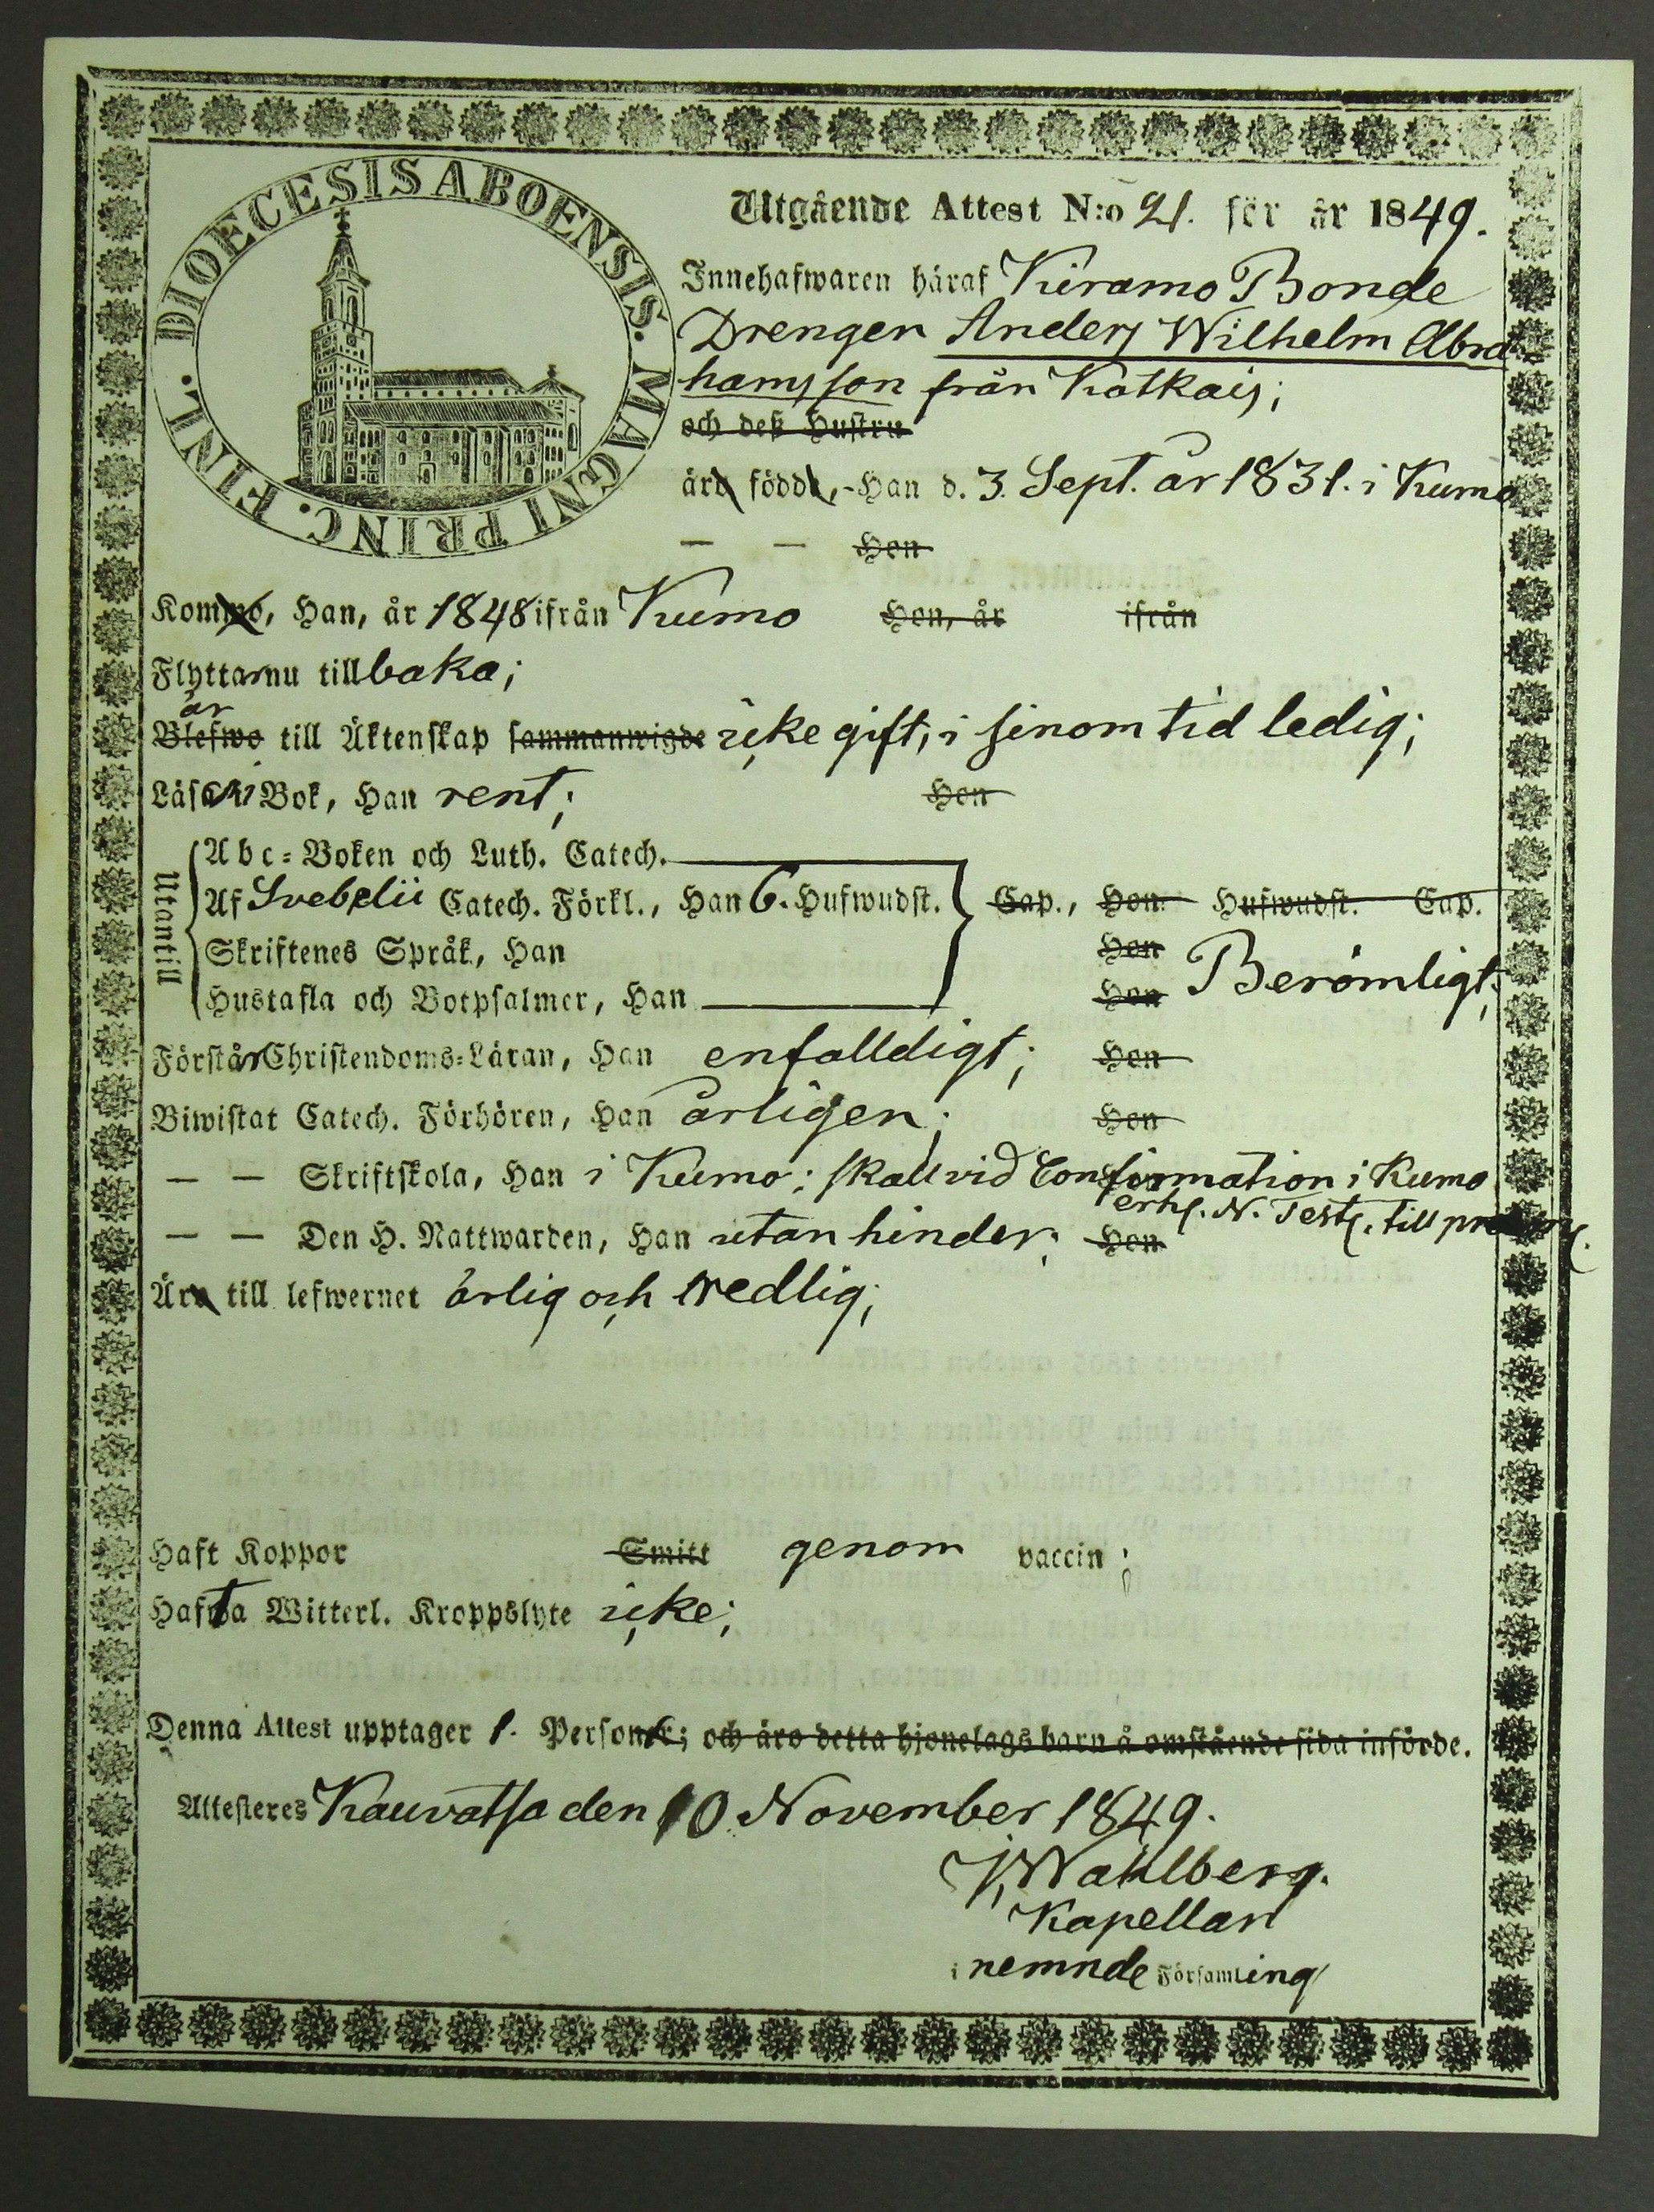 DIOECESIS ABOENSIS. MAGNI PRINC. FINL.
Utgående Attest N:o 21. för år 1849.
Innehafwaren häraf Kiramo Bonde
Drengen Anders Wilhelm Abra-
hamsson från Kotkais;
och deß Hustru
äro födde, - Han d. 3. Sept. år 1831. i Kumo
— — Hon
Kommo, Han, år 1848 ifrån Kumo Hon, år ifrån
Flyttar nu tillbaka;
är
Blefwo till Äktenskap sammanwigde icke gift, i sinom tid ledig;
Läser i Bok, Han rent; Hon
Utantill
Abc-Boken och Luth. Catech.
Af Svebelii Catech. Förkl., Han 6. Hufwudst. Cap., Hon Hufwudst. Cap.
Skriftenes Språk, Han Hon
Hustafla och Botpsalmer, Han Hon Berömligt;
Förstår Christendoms-Läran, Han enfalldigt; Hon
Biwistat Catech. Förhören, Han årligen; Hon
— — Skriftskola, Han i Kumo; skall vid Confirmation i Kumo
erh. N. Test. till
— — Den H. Nattwarden, Han utan hinder; Hon
Äro till lefwernet ärlig och redlig;
Haft Koppor Smitt genom vaccin;
Hafwa Witterl. Kroppslyte icke;
Denna Attest upptager 1. Person; och äro detta hjonelags barn å omstående sida införde.
Attesteres Kauvatsa den 10 November 1849.
J. Wahlberg.
Kapellan
i nemnde Församling